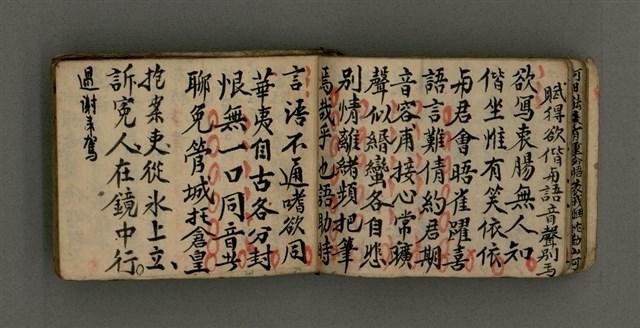 賦得欲偕與語音聲別焉
欲寫衷腸無人知
偕坐惟有笑依依
與君會晤雀躍喜
語言難倩約君期
音容甫接心常曠
聲似緡蠻各自悲
別情離緒頻把筆
焉哉乎也語助時
言語不通嗜欲同
華夷自古各分封
恨無一口同音共
聊免管城托倉皇
抱案吏從氷上立、
訴寃人在鏡中行。
過謝未駕